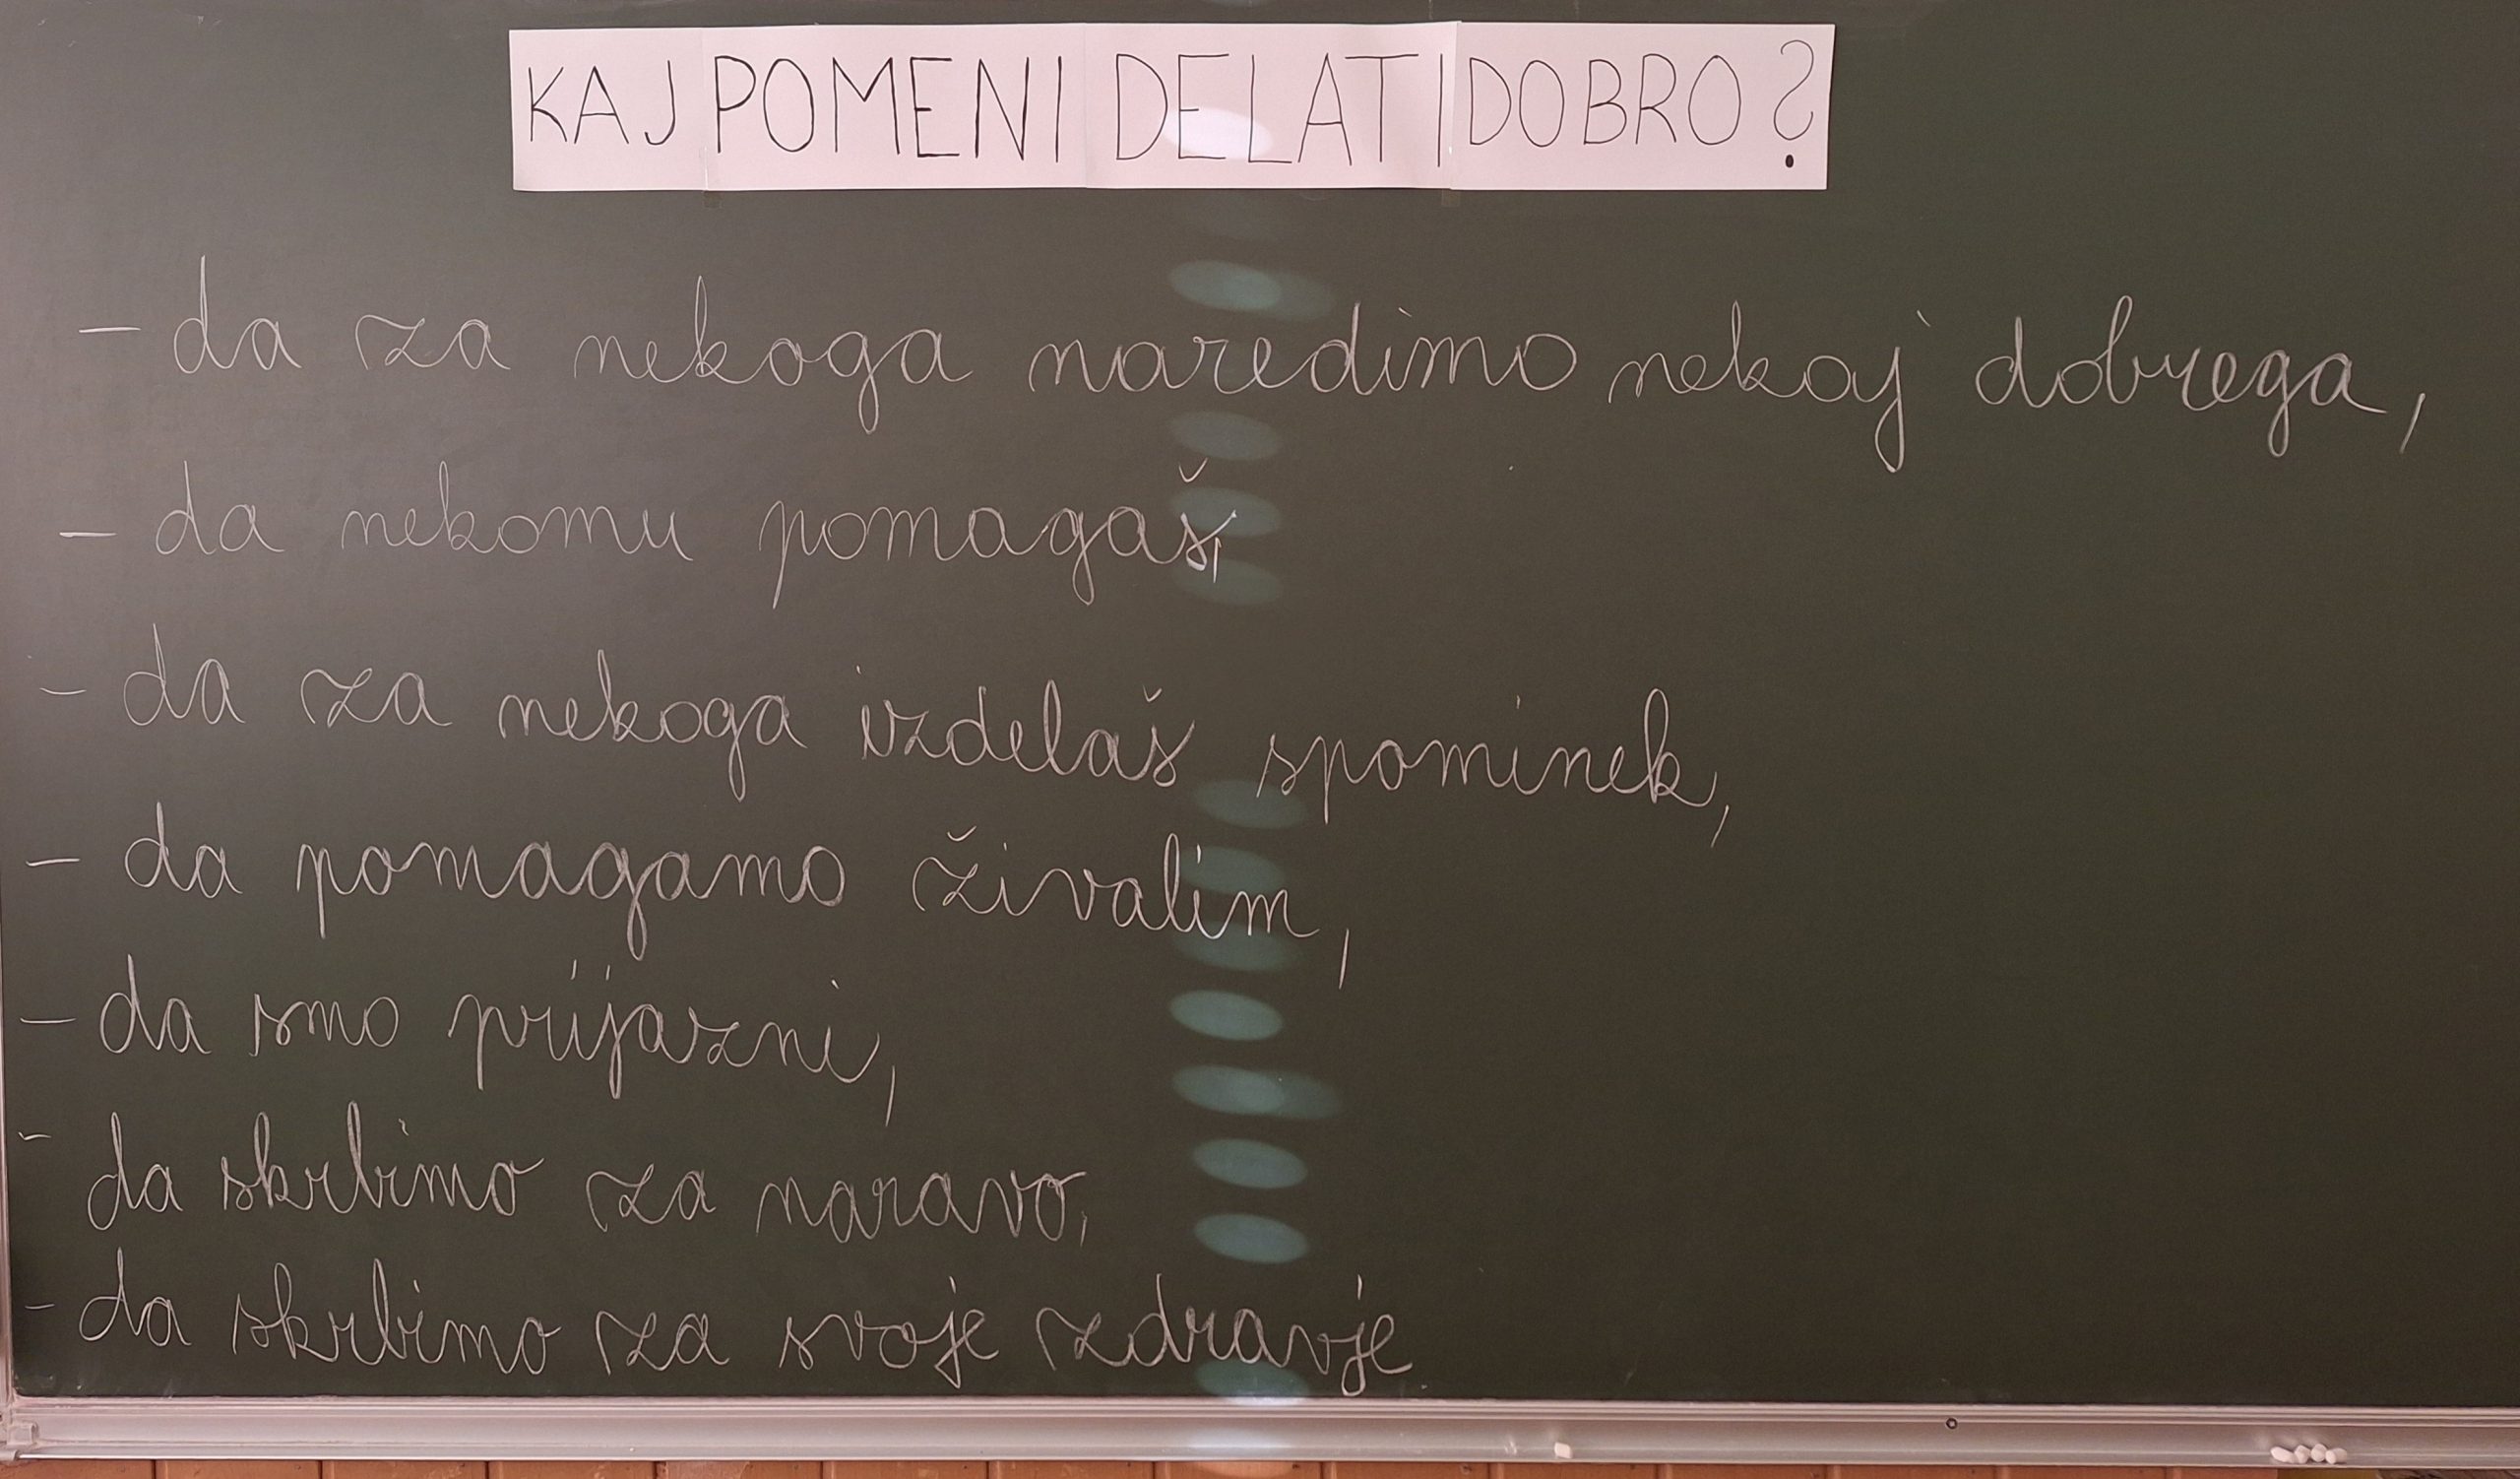 KAJ POMENI DELATI DOBRO?
- da za nekoga naredimo nekaj dobrega,
- da nekomu pomagaš,
- da za nekoga izdelaš spominek,
- da pomagamo živalim,
- da smo prijazni,
- da skrbimo za naravo,
- da skrbimo za svoje zdravje.